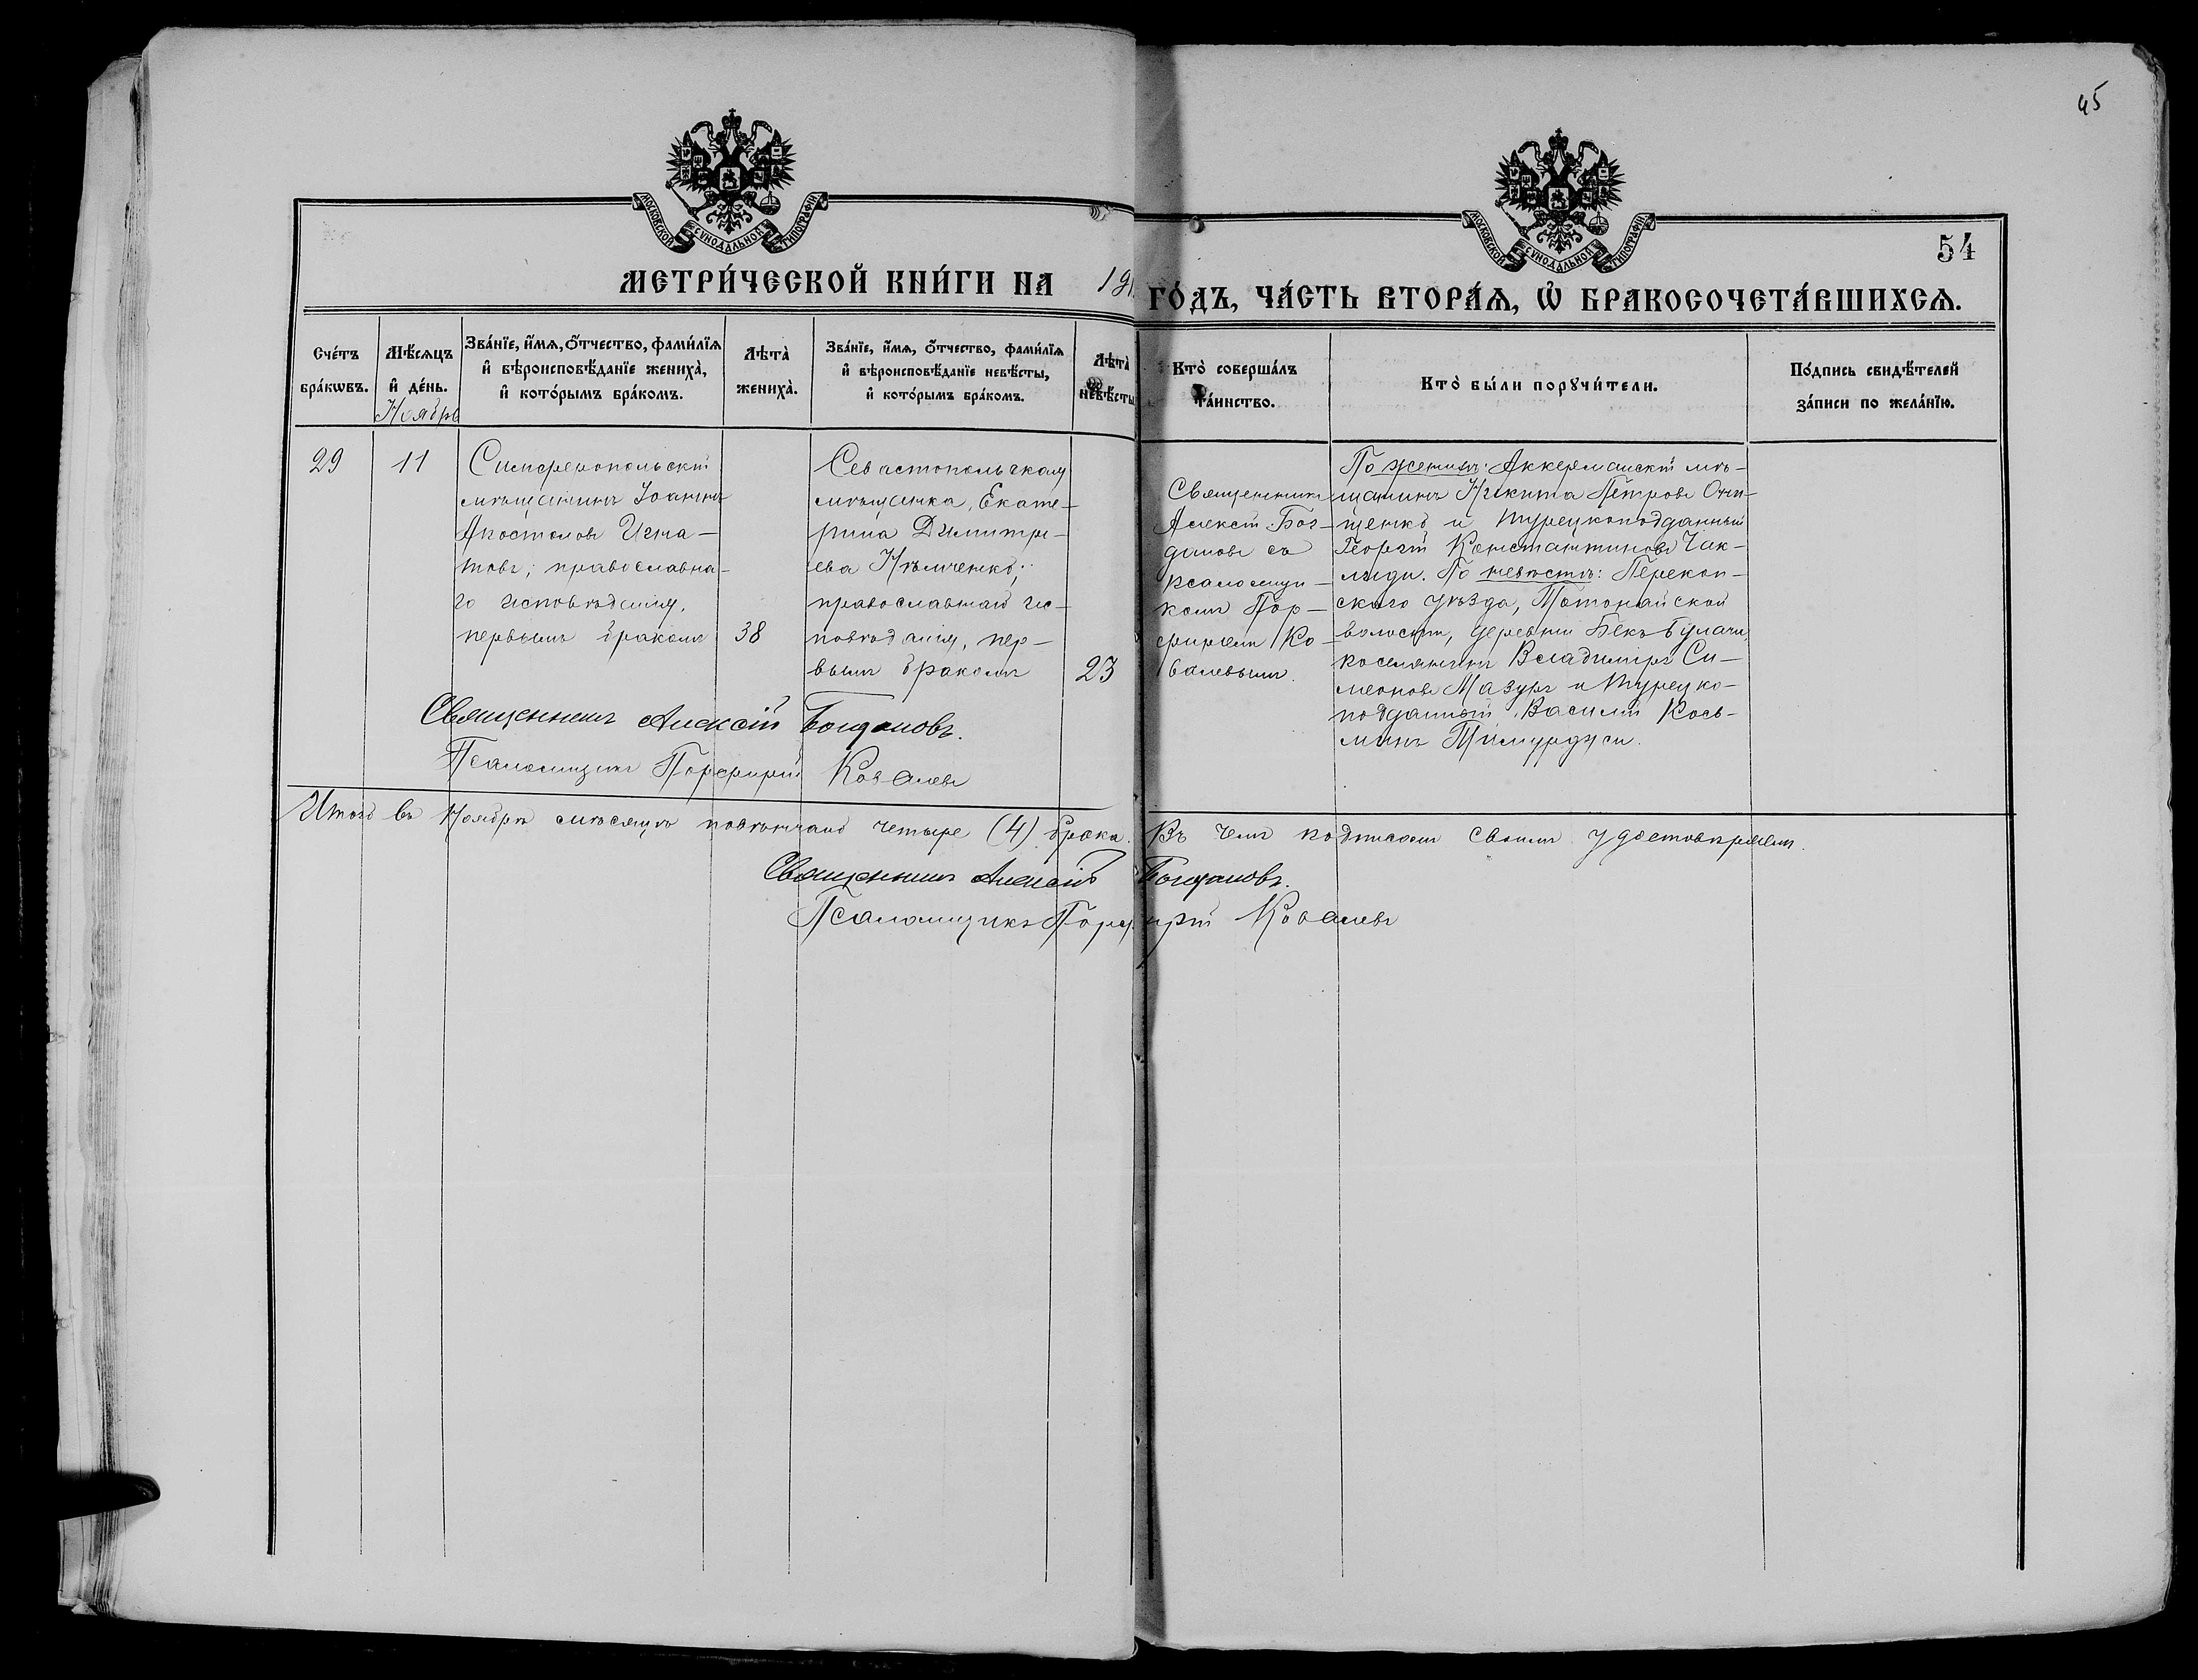 45
МОСКОВСКОЙ СѴНОДАЛЬНОЙ ТИПОГРАФІИ
МОСКОВСКОЙ СѴНОДАЛЬНОЙ ТИПОГРАФІИ
54
МЕТРИ́ЧЕСКОЙ КНИ́ГИ НА 191
ГО́ДЪ, ЧА́СТЬ ВТОРА́Ѧ, Ѽ БРАКОСОЧЕТА́ВШИХСѦ.
Сче́тъ
бра́кѡвъ.
Мѣ́сѧцъ
и҆ де́нь.
Ноябрь
Зва́нїе, и҆́мѧ, ѻ҆́тчество, фами́лїѧ
и҆ вѣроисповѣ́данїе жениха̀,
и҆ кото́рымъ бра́комъ.
Лѣта̀
жениха̀.
Зва́нїе, и҆́мѧ, ѻ҆́тчество, фами́лїѧ
и҆ вѣроисповѣ́данїе невѣ́сты,
и҆ кото́рымъ бра́комъ.
Лѣта̀
невѣ́сты
Кто̀ соверша́лъ
та́инство.
Кто̀ бы́ли порꙋчи́тели.
По́дпись свидѣ́телей
за́писи по жела́нїю.
29
11
Симферопольскій
мѣщанинъ Іоаннъ
Апостоловъ Игна-
товъ; православна-
го исповѣданія,
первымъ бракомъ
38
Севастопольская
мѣщанка, Екате-
рина Димитрі-
ева Нѣмченко;
православнаго ис-
повѣданія, пер-
вымъ бракомъ
23
Священникъ
Алексій Бог-
дановъ съ
псаломщи-
комъ Пор-
фиріемъ Ко-
валевымъ.
По женихѣ: Аккерманскій мѣ-
щанинъ Никита Петровъ Они-
щенко и турецкоподданный
Георгій Константиновъ Чак-
лиди. По невѣстѣ: Перекоп-
скаго уѣзда, Тотонайской
волости, деревни Бекъ-Булачи,
поселянинъ Владиміръ Си-
меоновъ Мазуръ и турецко-
подданный Василій Кось-
минъ Тимурдуси.
Священникъ Алексій Богдановъ.
Псаломщикъ Порфирій Ковалевъ
Итого въ Ноябрѣ мѣсяцѣ повѣнчано четыре (4) брака. Въ чемъ подписомъ своимъ удостовѣряемъ.
Священникъ Алексій Богдановъ.
Псаломщикъ Порфирій Ковалевъ